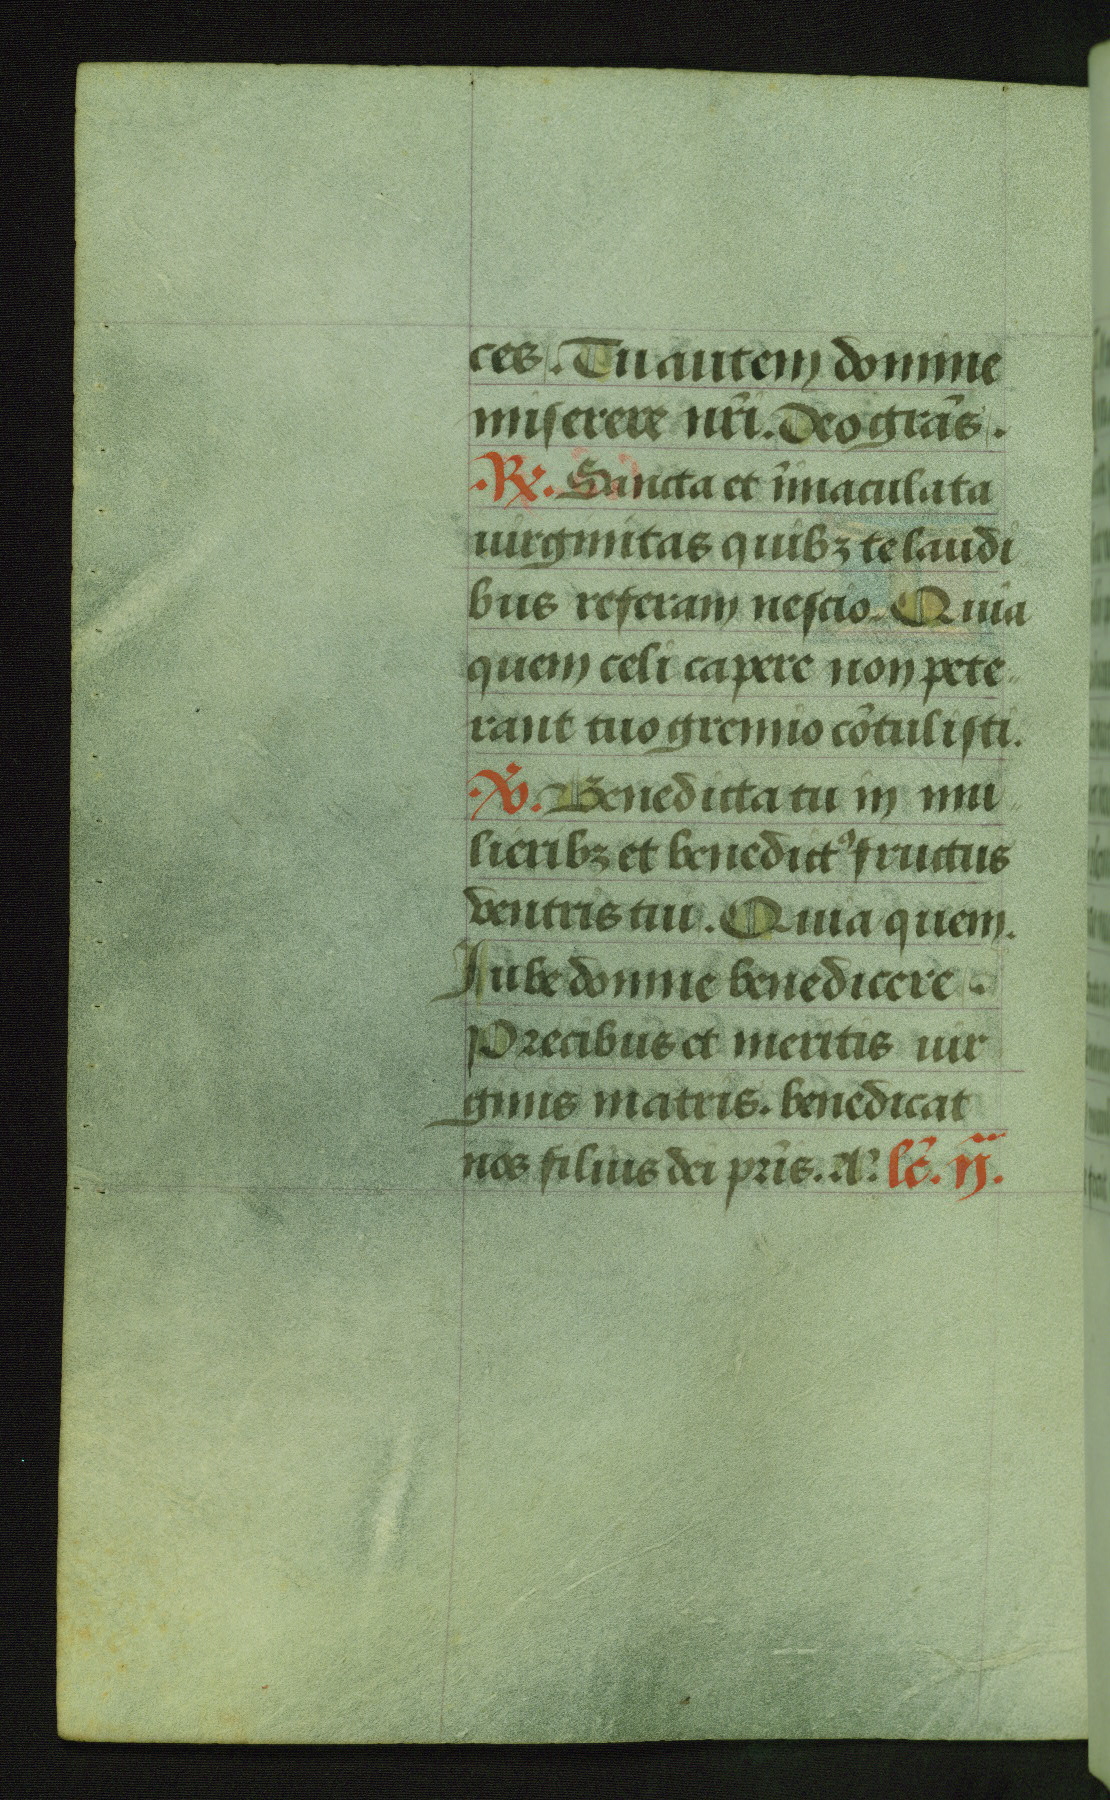 ces. Tu autem domine
miserere nr̃i. Deo grãs.
.℟. Sancta et ĩmaculata
uirginitas quibꝫ te laudi
bus referam nescio. Quia
quem celi capere non pote
rant tuo gremio cõtulisti.
.℣. Benedicta tu in mu
lieribꝫ et benedictꝰ fructus
ventris tui. Quia quem.
Iube domine benedicere.
Precibus et meritis uir
ginis matris. benedicat
nos filius dei pr̃is. A. lc̃. ij.